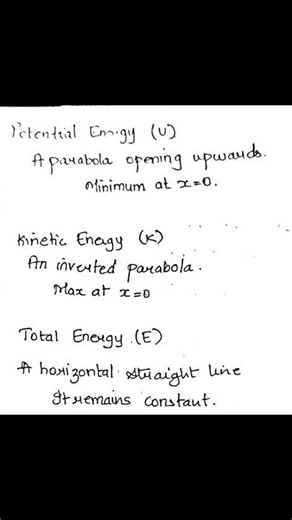 Potential Energy (U)
A parabola opening upwards.
Minimum at x=0.
Kinetic Energy (K)
An inverted parabola.
Max at x=0
Total Energy (E)
A horizontal straight line
It remains constant.